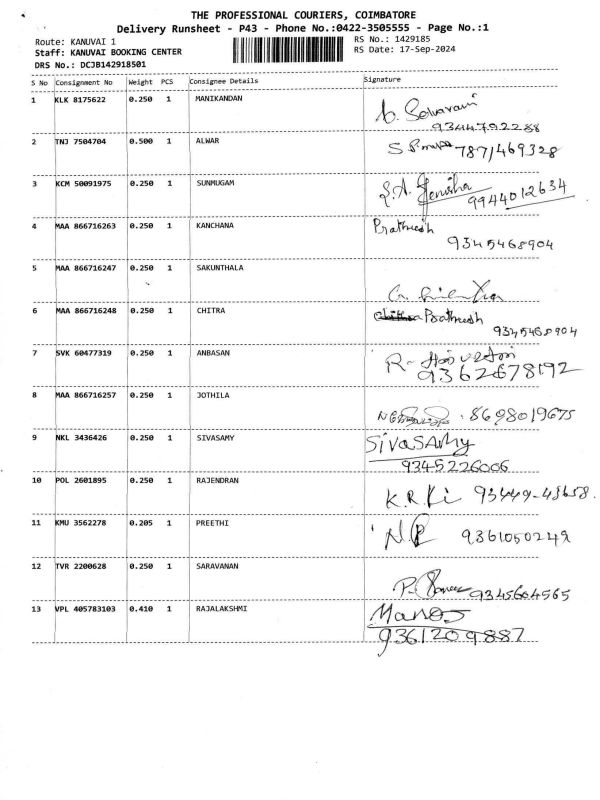 THE PROFESSIONAL COURIERS, COIMBATORE
Delivery Runsheet - P43 - Phone No.:0422-3505555 - Page No.:1
Route: KANUVAI 1 RS No.: 1429185
Staff: KANUVAI BOOKING CENTER RS Date: 17-Sep-2024
DRS No.: DCJB142918501
S No Consignment No Weight PCS Consignee Details Signature
1 KLK 8175622 0.250 1 MANIKANDAN
9344792288
2 TNJ 7504704 0.500 1 ALWAR 7871469328
3 KCM 50091975 0.250 1 SUNMUGAM 9944012634
4 MAA 866716263 0.250 1 KANCHANA Prathiesh
9345468904
5 MAA 866716247 0.250 1 SAKUNTHALA
6 MAA 866716248 0.250 1 CHITRA Prathiesh
9345468904
7 SVK 60477319 0.250 1 ANBASAN
9362678192
8 MAA 866716257 0.250 1 JOTHILA 8698019675
9 NKL 3436426 0.250 1 SIVASAMY SivaSAMY
9345226006
10 POL 2601895 0.250 1 RAJENDRAN 93449-43658.
11 KMU 3562278 0.205 1 PREETHI 9361050249
12 TVR 2200628 0.250 1 SARAVANAN
9345604565
13 VPL 405783103 0.410 1 RAJALAKSHMI Manoj
9361209887